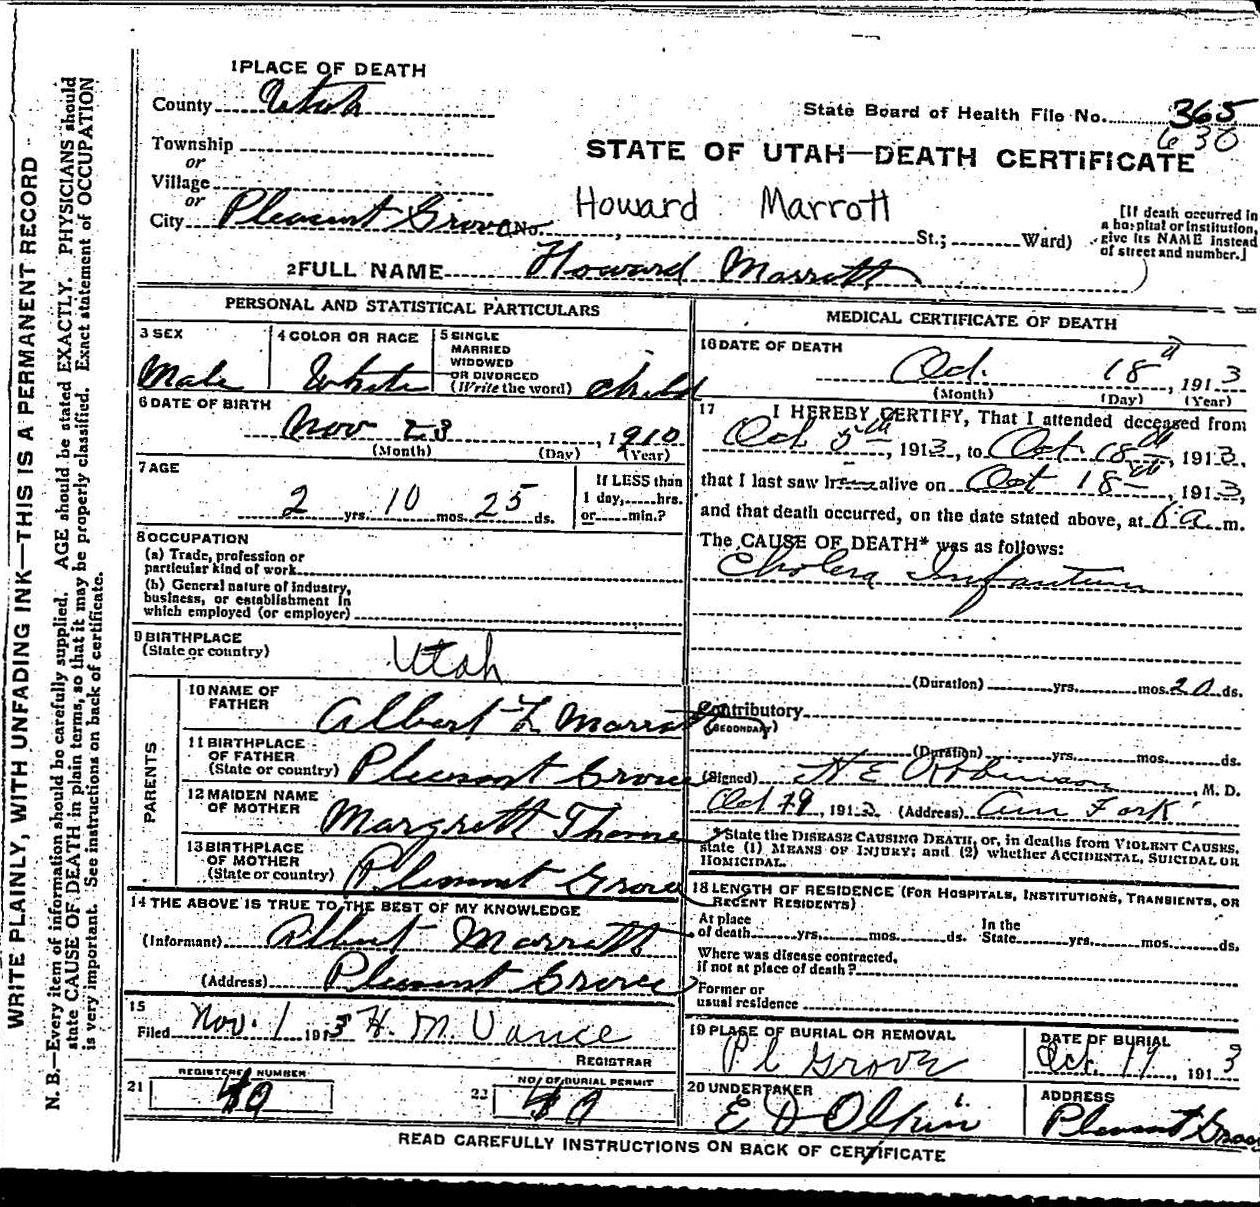 WRITE PLAINLY, WITH UNFADING INK—THIS IS A PERMANENT RECORD
N. B.—Every item of information should be carefully supplied. AGE should be stated EXACTLY. PHYSICIANS should
state CAUSE OF DEATH in plain terms, so that it may be properly classified. Exact statement of OCCUPATION
is very important. See instructions on back of certificate.
1 PLACE OF DEATH
County Utah
State Board of Health File No. 365
630
Township
or
Village
or
STATE OF UTAH—DEATH CERTIFICATE
Howard Marrott
City Pleasant Grove No. , St.; Ward)
[If death occurred in
a hospital or institution,
give its NAME instead
of street and number.]
2 FULL NAME Howard Marrott
PERSONAL AND STATISTICAL PARTICULARS
3 SEX
Male
4 COLOR OR RACE
White
5 SINGLE
MARRIED
WIDOWED
OR DIVORCED
(Write the word) child
6 DATE OF BIRTH
Nov 23, 1910
(Month) (Day) (Year)
7 AGE
2 yrs. 10 mos. 25 ds.
If LESS than
1 day, hrs.
or min.?
8 OCCUPATION
(a) Trade, profession or
particular kind of work
(b) General nature of industry,
business, or establishment in
which employed (or employer)
9 BIRTHPLACE
(State or country)
Utah
PARENTS
10 NAME OF
FATHER
Albert L Marrott
11 BIRTHPLACE
OF FATHER
(State or country) Pleasant Grove
12 MAIDEN NAME
OF MOTHER
Margrett Thorne
13 BIRTHPLACE
OF MOTHER
(State or country) Pleasant Grove
14 THE ABOVE IS TRUE TO THE BEST OF MY KNOWLEDGE
(Informant) Albert Marrott
(Address) Pleasant Grove
15
Filed Nov. 1 1913 H. M. Vance
REGISTRAR
21 REGISTERED NUMBER
22 NO. OF BURIAL PERMIT
MEDICAL CERTIFICATE OF DEATH
16 DATE OF DEATH
Oct. 18, 1913
(Month) (Day) (Year)
17 I HEREBY CERTIFY, That I attended deceased from
Oct 5th, 1913, to Oct 18th, 1913,
that I last saw h alive on Oct 18th, 1913,
and that death occurred, on the date stated above, at 6 a. m.
The CAUSE OF DEATH* was as follows:
Cholera Infantum
(Duration) yrs. mos. 20 ds.
Contributory
(SECONDARY)
(Duration) yrs. mos. ds.
(Signed) H E Robinson, M. D.
Oct 19, 1913 (Address) Am Fork
*State the DISEASE CAUSING DEATH, or, in deaths from VIOLENT CAUSES,
state (1) MEANS OF INJURY; and (2) whether ACCIDENTAL, SUICIDAL OR
HOMICIDAL.
18 LENGTH OF RESIDENCE (FOR HOSPITALS, INSTITUTIONS, TRANSIENTS, OR
RECENT RESIDENTS)
At place
of death yrs. mos. ds.
In the
State yrs. mos. ds.
Where was disease contracted,
if not at place of death?
Former or
usual residence
19 PLACE OF BURIAL OR REMOVAL
Pl Grove
DATE OF BURIAL
Oct. 19, 1913
20 UNDERTAKER
E D Olpin
ADDRESS
Pleasant Grove
READ CAREFULLY INSTRUCTIONS ON BACK OF CERTIFICATE